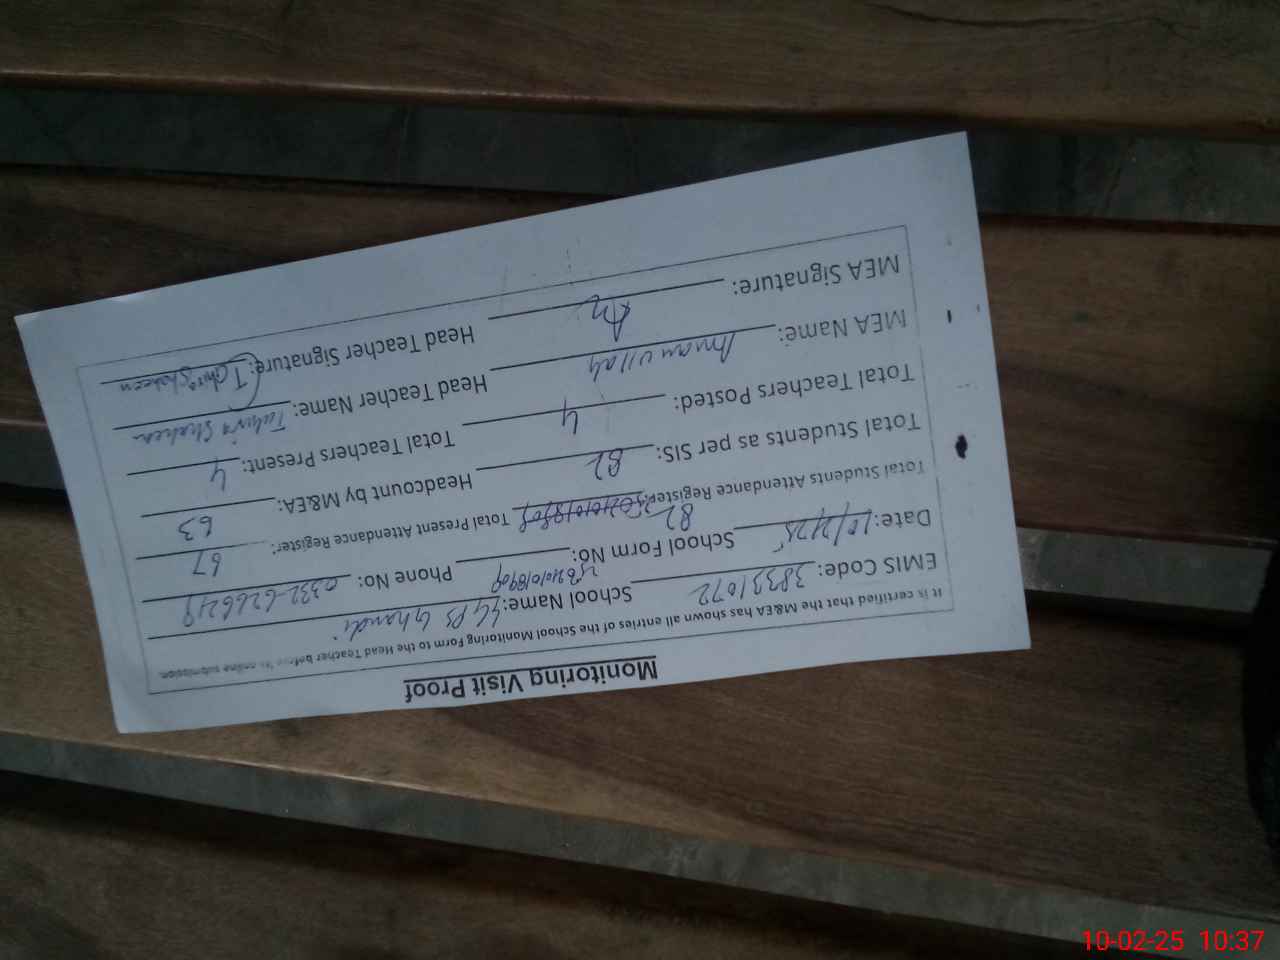 Monitoring Visit Proof
It is certified that the M&EA has shown all entries of the School Monitoring Form to the Head Teacher before its online submission.
EMIS Code: 38331072 School Name: GGPS Ghandi
Date: 10/2/25 School Form No: Phone No: 0332-6266219
Total Students Attendance Register: 82 Total Present Attendance Register: 67
Total Students as per SIS: 82 Headcount by M&EA: 63
Total Teachers Posted: 4 Total Teachers Present: 4
MEA Name: Imam ullah Head Teacher Name: Tahira Shaheen
MEA Signature: Head Teacher Signature: Tahira Shaheen
10-02-25 10:37